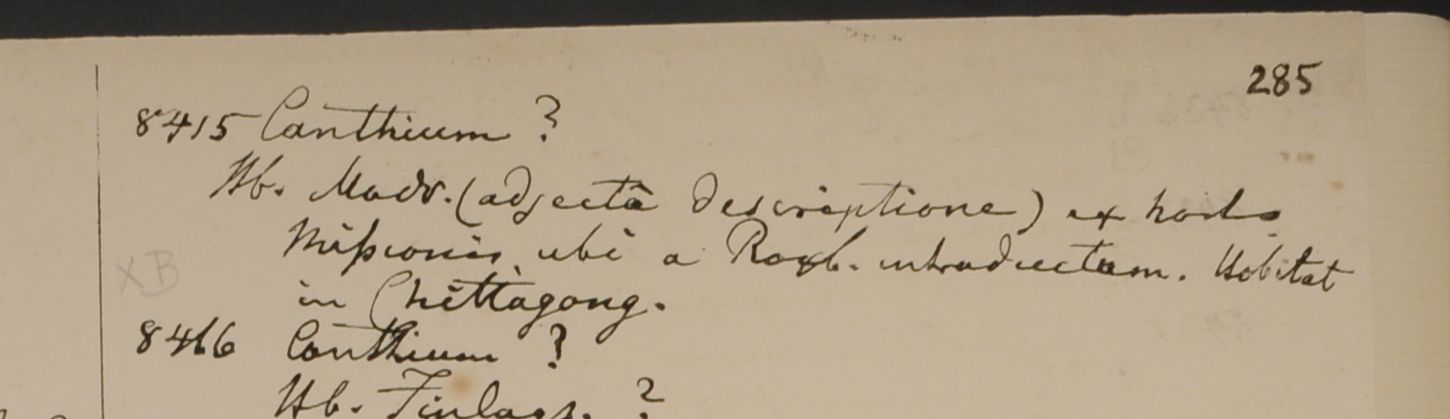 285
8415 Canthium ?
Hb. Madr. (adjectâ descriptione) ex horto
Missionis ubi a Roxb. introductum. Habitat
in Chittagong.
XB
8416 Canthium ?
Hb. Finlays. ?